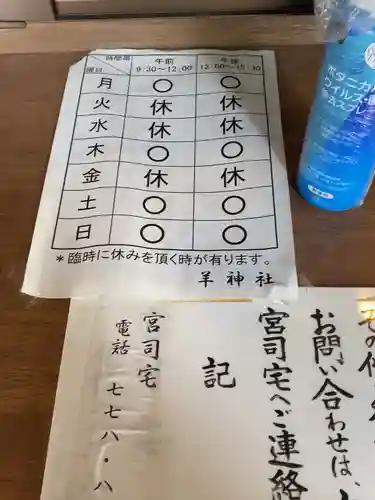 時間帯 午前 午後
曜日 9:30~12:00 12:00~15:30
月 ○ ○
火 休 休
水 休 休
木 ○ ○
金 休 休
土 ○ ○
日 ○ ○
*臨時に休みを頂く時が有ります。
羊神社
ボタニカル
ウイルス・
除去スプレー
お問い合わせは、
宮司宅へご連絡
記
宮司宅
電話 七七八・八